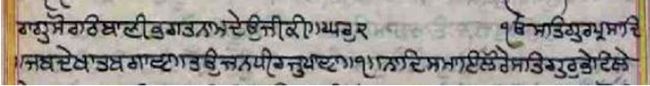 ਰਾਗੁਸੋਰਠਿਬਾਣੀਭਗਤਨਾਮਦੇਉਜੀਕੀ॥ਘਰੁ੨ ੴਸਤਿਗੁਰਪ੍ਰਸਾਦਿ
॥ਜਬਦੇਖਾਤਬਗਾਵਾ॥ਤਉਜਨਧੀਰਜੁਪਾਵਾ॥੧॥ਨਾਦਿਸਮਾਇਲੋਰੇਸਤਿਗੁਰੁਭੇਟਿਲੇ